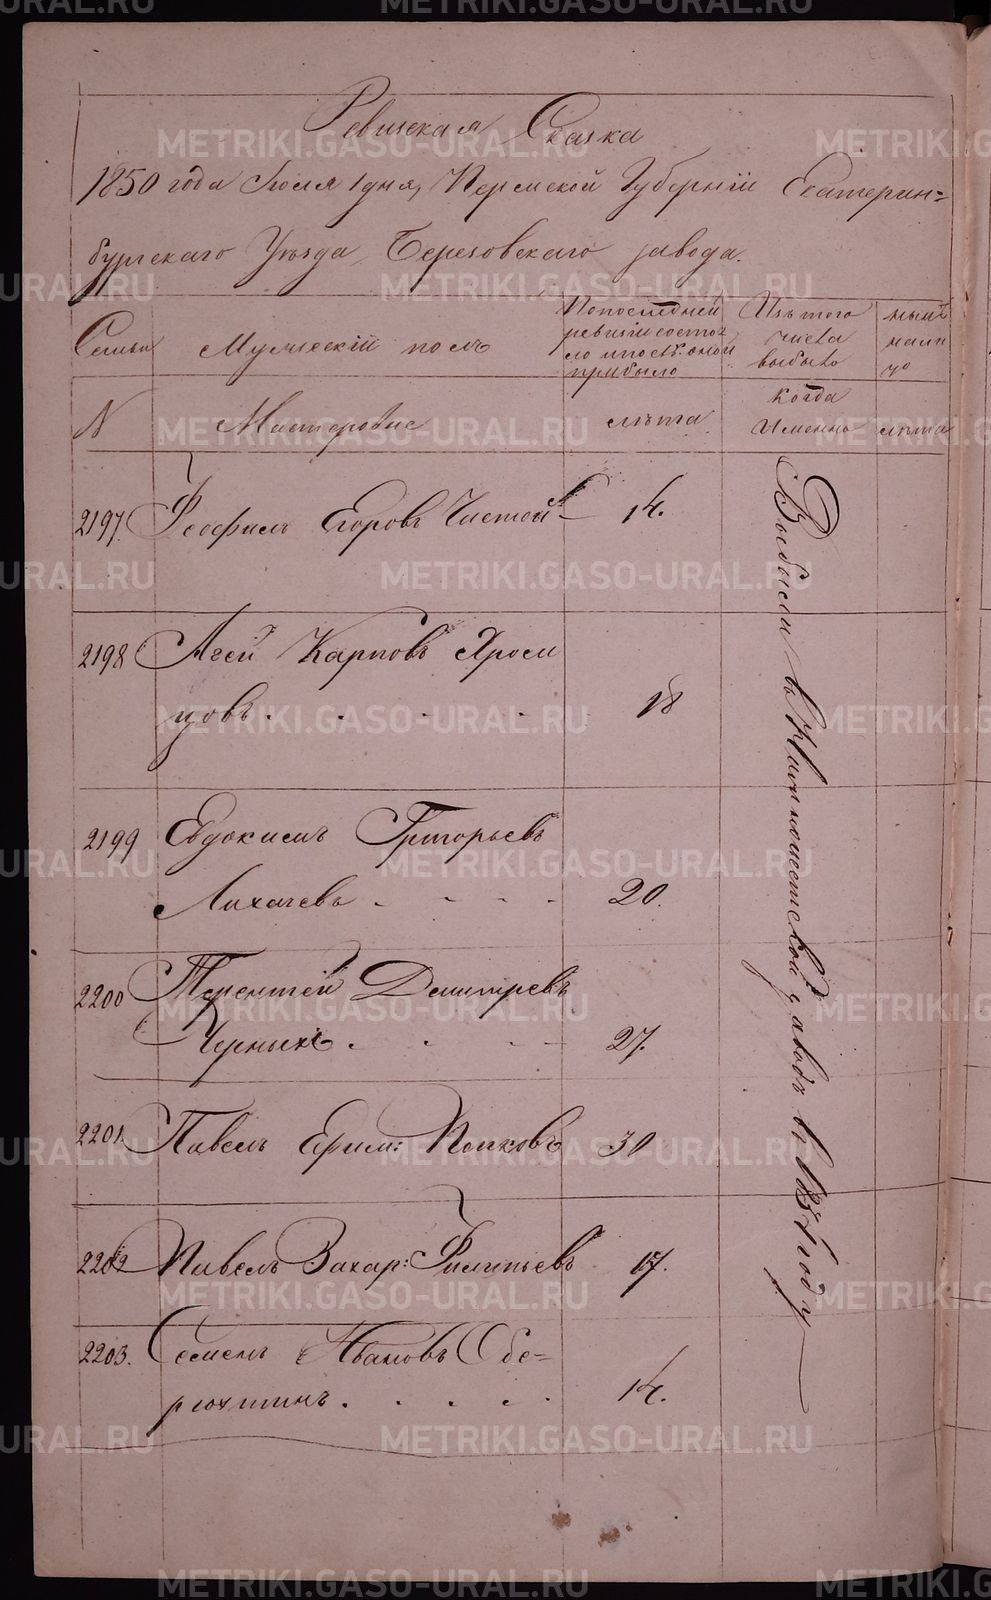 Ревижская Сказка
1850 года Июля 1 дня, Пермской Губерніи Екатерин=
бургскаго Уѣзда, Березовскаго завода.
Семьи
Мужескій полъ
По последней
ревизіи состоя
ло и после оной
прибыло
Изъ того
числа
выбыло
нынѣ
на ли
цо
N
Мастеровые
лѣта
когда
Именно
лѣта
2197. Феофилъ Егоровъ 14.
2198 Агей Карповъ Хром
цовъ. 18
2199 Евдокимъ Григорьевъ
Лихачевъ 20.
2200 Терентей Дмитревъ
Черныхъ. 27.
2201. Павелъ Ерим: Попковъ 30
2202 Павелъ Захар: Филипьевъ 17.
2203. Семенъ Ивановъ Обе=
рюхтинъ. 14.
Выбыли въ заводъ въ году
METRIKI.GASO-URAL.RU